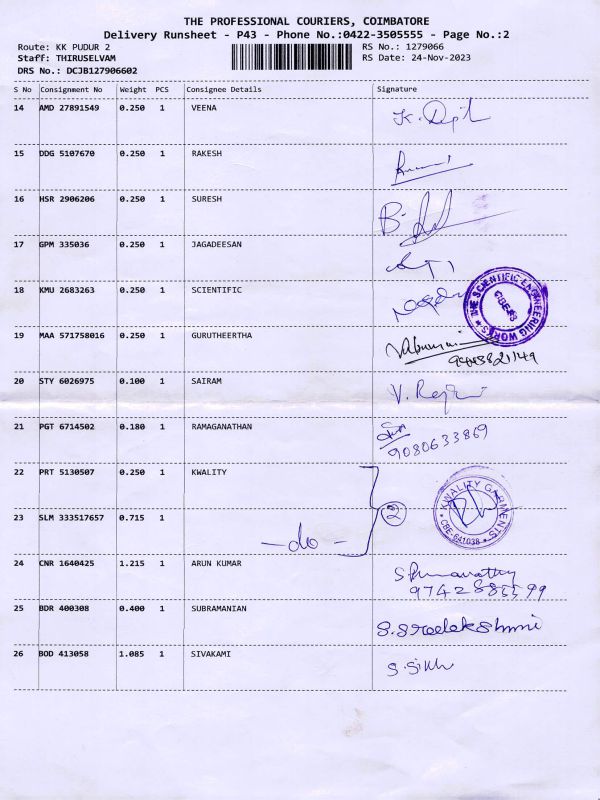 THE PROFESSIONAL COURIERS, COIMBATORE
Delivery Runsheet - P43 - Phone No.:0422-3505555 - Page No.:2
Route: KK PUDUR 2 RS No.: 1279066
Staff: THIRUSELVAM RS Date: 24-Nov-2023
DRS No.: DCJB127906602
S No Consignment No Weight PCS Consignee Details Signature
14 AMD 27891549 0.250 1 VEENA
15 DDG 5107670 0.250 1 RAKESH
16 HSR 2906206 0.250 1 SURESH
17 GPM 335036 0.250 1 JAGADEESAN
18 KMU 2683263 0.250 1 SCIENTIFIC
THE SCIENTIFIC ENGINEERING WORKS
19 MAA 571758016 0.250 1 GURUTHEERTHA
20 STY 6026975 0.100 1 SAIRAM
21 PGT 6714502 0.180 1 RAMAGANATHAN
9080633869
22 PRT 5130507 0.250 1 KWALITY
KWALITY GARMENTS
CBE-641038
2
23 SLM 333517657 0.715 1
- do -
24 CNR 1640425 1.215 1 ARUN KUMAR
25 BDR 400308 0.400 1 SUBRAMANIAN S.Sreelekshmi
26 BOD 413058 1.085 1 SIVAKAMI